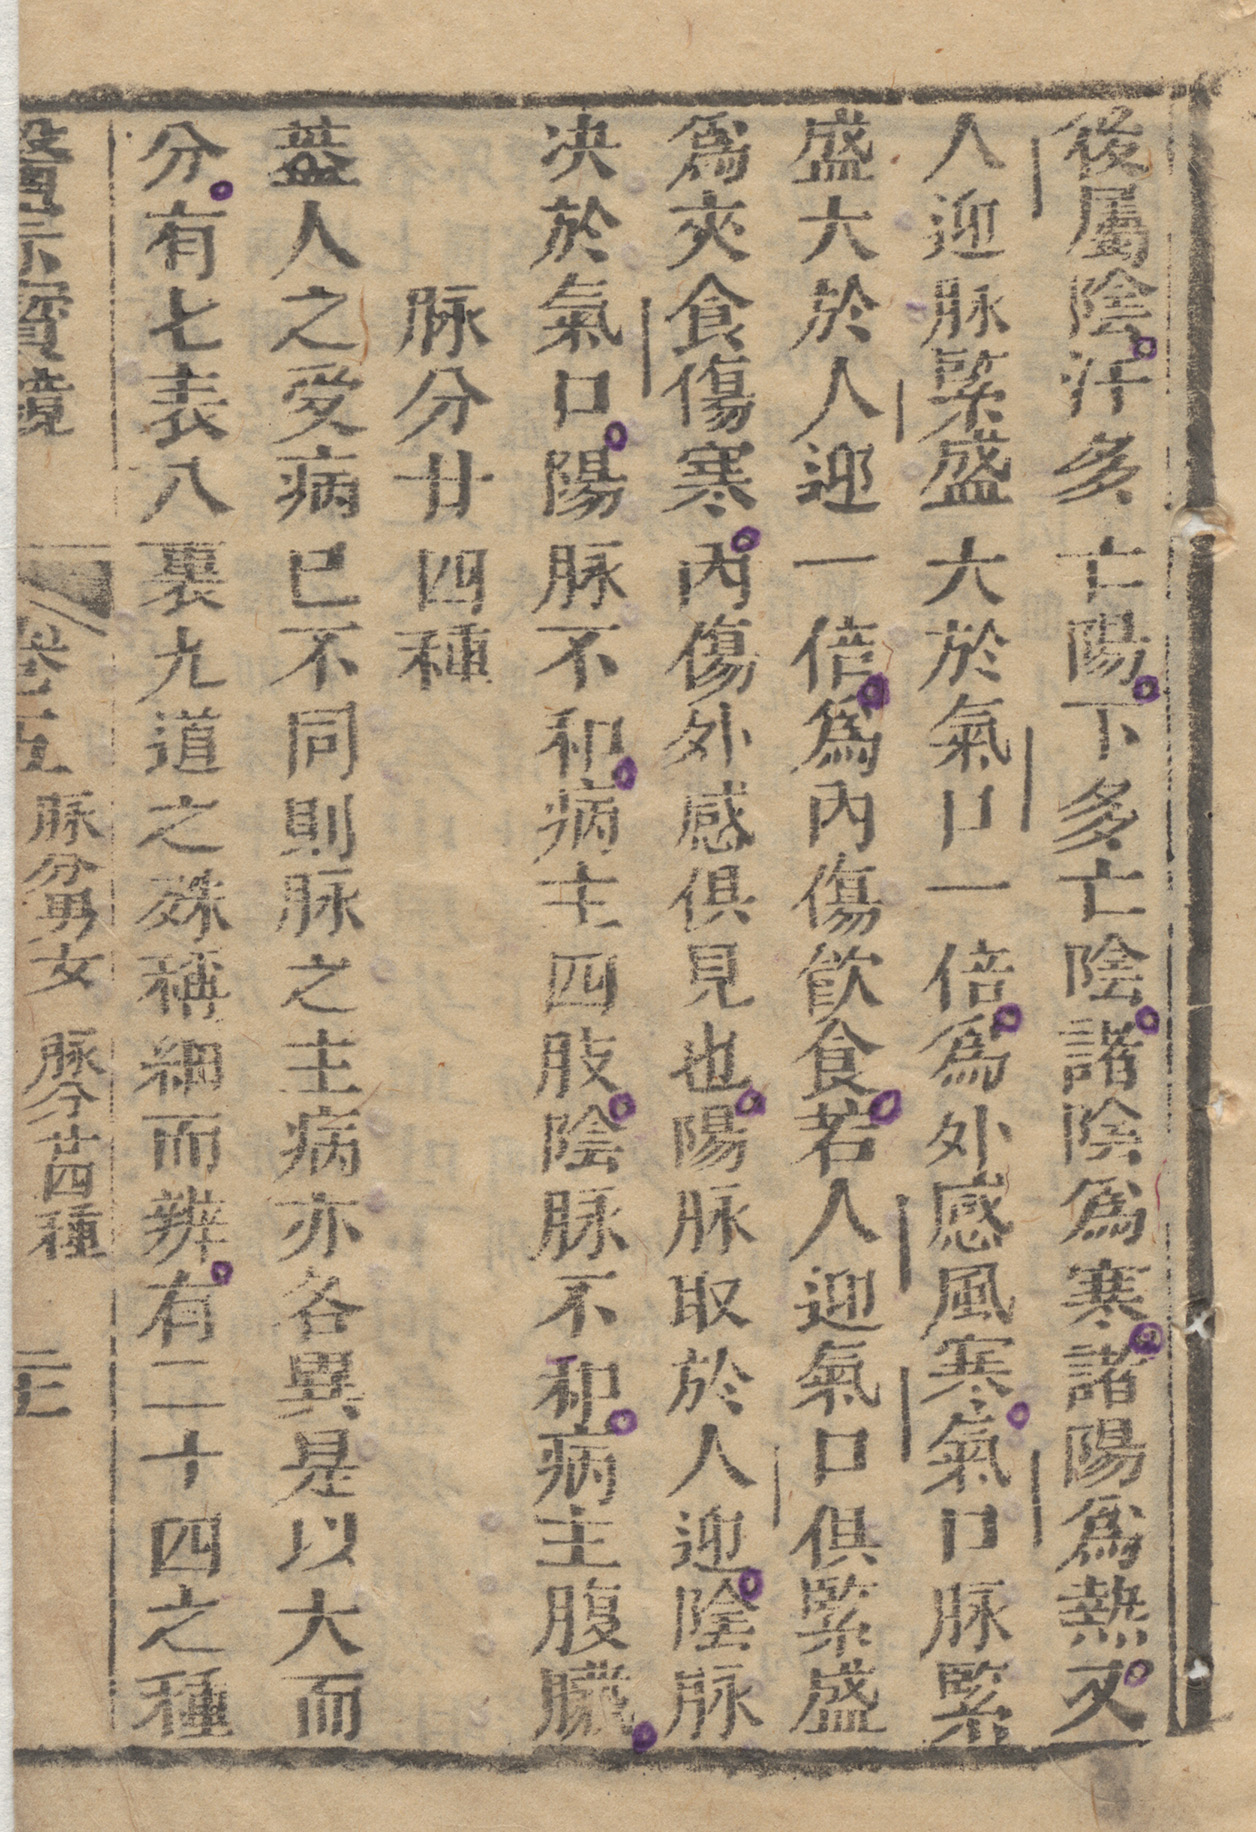 後屬陰汗多亡陽下多亡陰諸陰爲寒諸陽爲熱又
人迎脉緊盛大於氣口一倍爲外感風寒氣口脉緊
盛大於人迎一倍爲內傷飲食若人迎氣口俱緊盛
爲夾食傷寒內傷外感俱見也陽脉取於人迎陰脉
决於氣口陽脉不和病主四肢陰脉不和病主腹臟
脉分廿四種
葢人之受病已不同則脉之主病亦各異是以大而
分有七表八裏九道之殊稱細而辨有二十四之種
醫宗寶鏡 卷五 脉分男女 脉分廿四種